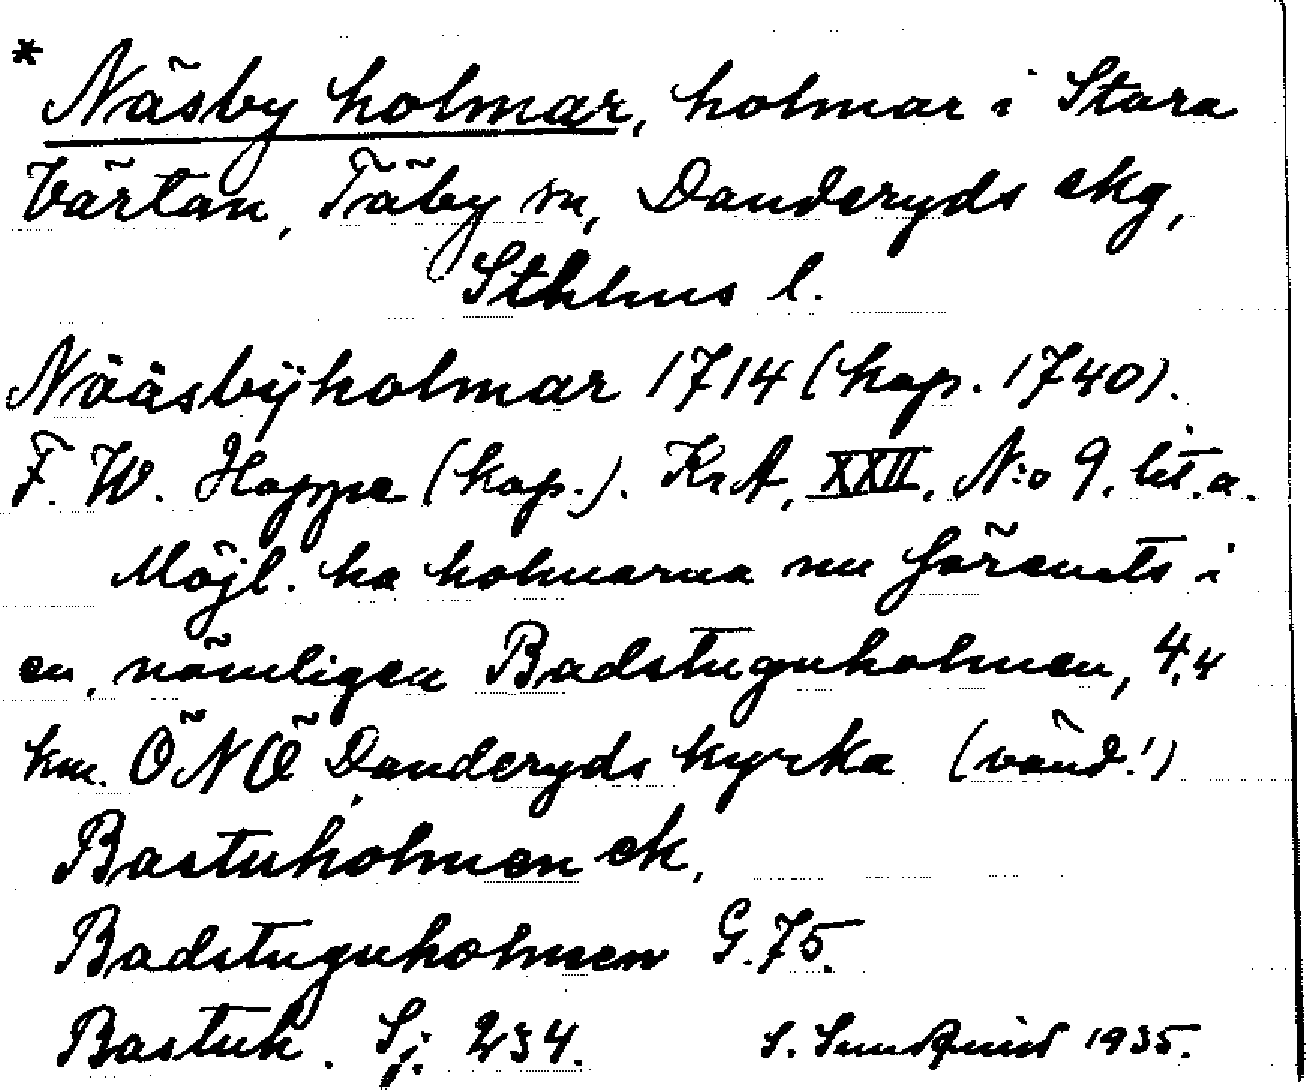 * Näsby holmar, holmar i Stora
Värtan, Täby sn, Danderyds skg,
Sthlms l.
Nääsbÿholmar 1714 (kop. 1740).
F. W. Hoppe (kop.). KrA, XXII, N:o 9. lit. a.
Möjl. ha holmarna nu förenats i
en, nämligen Badstuguholmen, 4,4
km. ÖNÖ Danderyds kyrka (vänd!)
Bastuholmen ek.
Badstuguholmen G. 75.
Bastuh. Sj. 234. S. Sundqvist 1935.